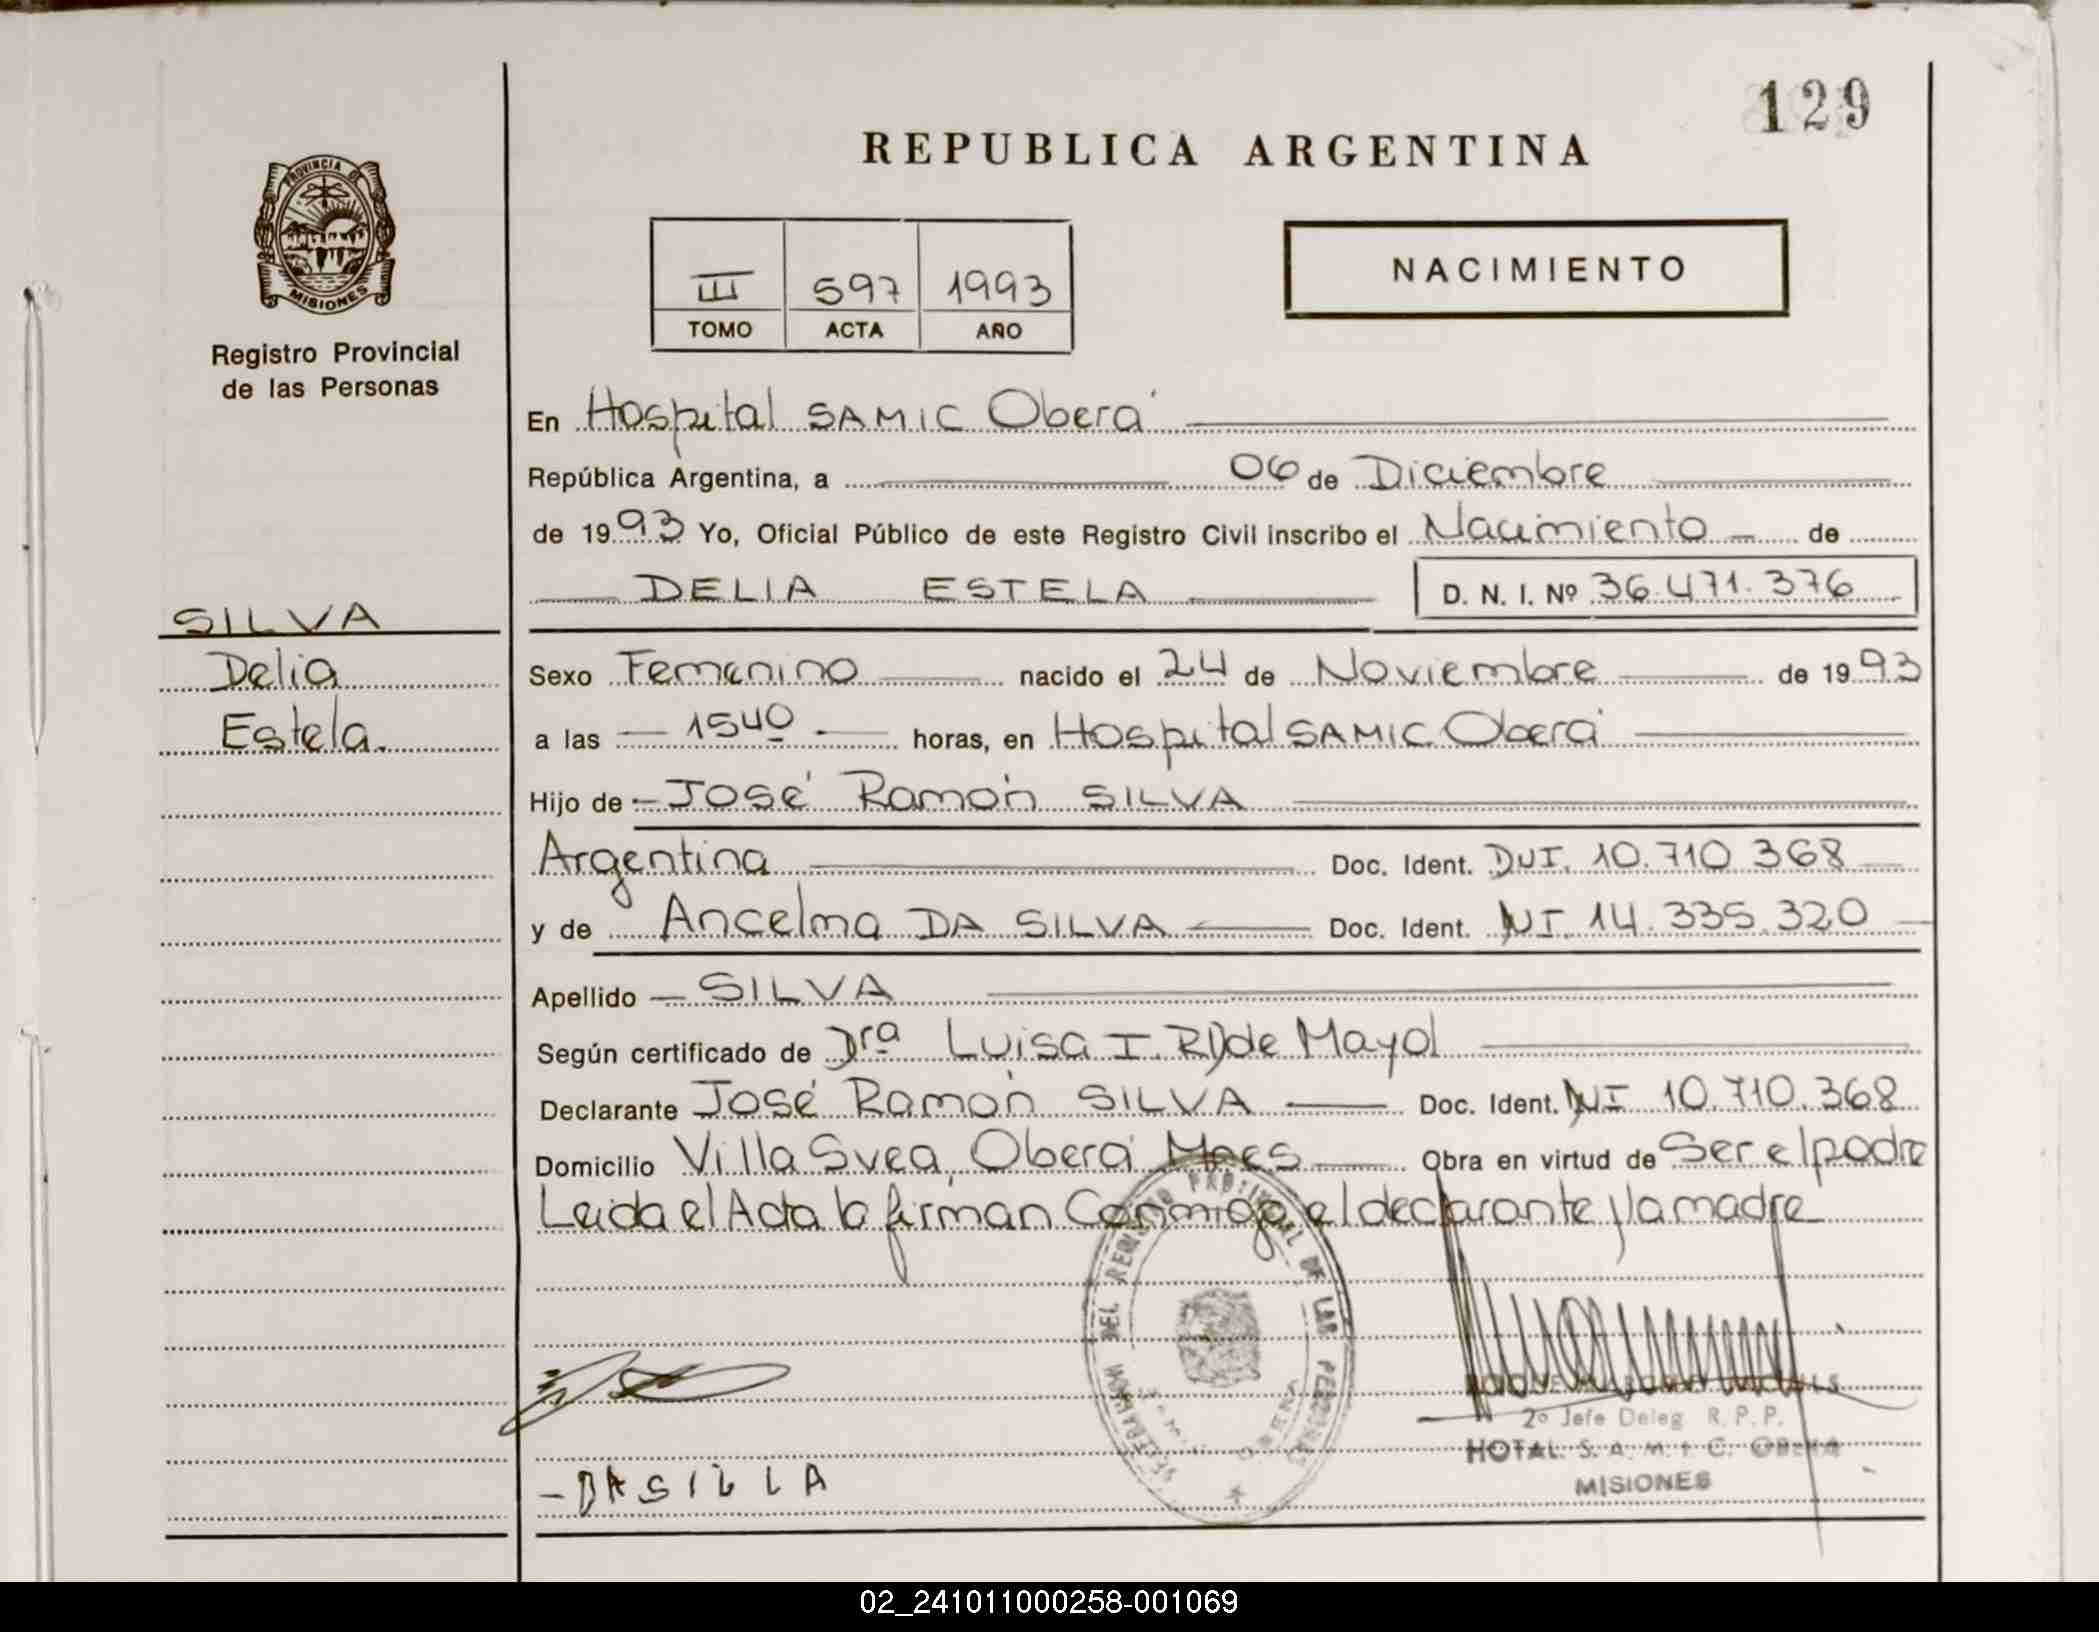 129
REPUBLICA ARGENTINA
PROVINCIA DE
MISIONES
Registro Provincial
de las Personas
III 597 1993
TOMO ACTA AÑO
NACIMIENTO
En Hospital SAMIC Oberá
República Argentina, a 06 de Diciembre
de 1993 Yo, Oficial Público de este Registro Civil inscribo el Nacimiento de
DELIA ESTELA D. N. I. Nº 36.471.376
SILVA
Delia
Estela.
Sexo Femenino nacido el 24 de Noviembre de 1993
a las 1540 horas, en Hospital SAMIC Oberá
Hijo de José Ramón SILVA
Argentina Doc. Ident. DNI. 10.710.368
y de Ancelma DA SILVA Doc. Ident. NI. 14.335.320
Apellido SILVA
Según certificado de Dra Luisa I. de Mayol
Declarante José Ramón SILVA Doc. Ident. NI 10.710.368
Domicilio Villa Svea, Oberá Mnes Obra en virtud de Ser el padre
Leida el Acta la firman Conmigo el declarante y la madre
DEL REGISTRO PROVINCIAL DE LAS PERSONAS
2º Jefe Deleg R.P.P.
HOTAL S.A.M.I.C. OBERA
MISIONES
- DASILLA
02_241011000258-001069